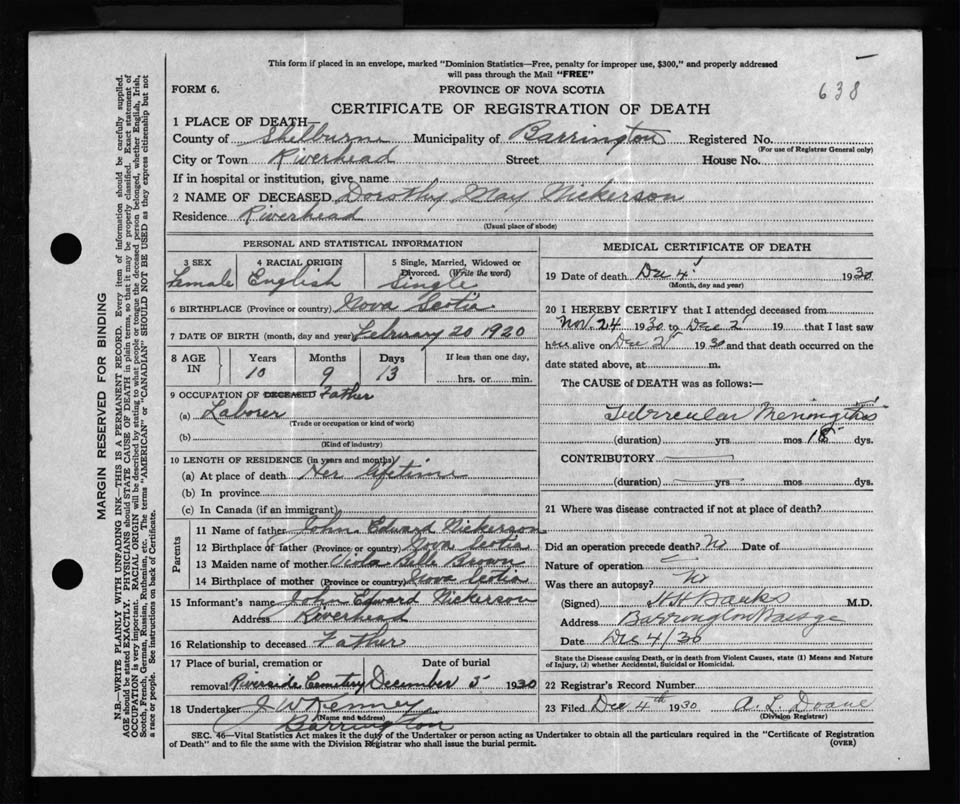 This form if placed in an envelope, marked "Dominion Statistics—Free, penalty for improper use, $300," and properly addressed
will pass through the Mail "FREE"
638
FORM 6.
PROVINCE OF NOVA SCOTIA
CERTIFICATE OF REGISTRATION OF DEATH
1 PLACE OF DEATH—
County of Shelburne Municipality of Barrington Registered No.
(For use of Registrar General only)
City or Town Riverhead Street House No.
If in hospital or institution, give name
2 NAME OF DECEASED Dorothy May Nickerson
Residence Riverhead
(Usual place of abode)
PERSONAL AND STATISTICAL INFORMATION
3 SEX Female
4 RACIAL ORIGIN English
5 Single, Married, Widowed or
Divorced. (Write the word)
Single
6 BIRTHPLACE (Province or country) Nova Scotia
7 DATE OF BIRTH (month, day and year) February 20 1920
8 AGE IN Years Months Days If less than one day,
10 9 13 hrs. or min.
9 OCCUPATION OF DECEASED Father
(a) Laborer
(Trade or occupation or kind of work)
(b)
(Kind of industry)
10 LENGTH OF RESIDENCE (in years and months)
(a) At place of death Her lifetime
(b) In province
(c) In Canada (if an immigrant)
Parents
11 Name of father John Edward Nickerson
12 Birthplace of father (Province or country) Nova Scotia
13 Maiden name of mother Viola Belle Brown
14 Birthplace of mother (Province or country) Nova Scotia
15 Informant's name John Edward Nickerson
Address Riverhead
16 Relationship to deceased Father
17 Place of burial, cremation or Date of burial
removal Riverside Cemetery December 5 1930
18 Undertaker J W Kenney
(Name and address)
Barrington
MEDICAL CERTIFICATE OF DEATH
19 Date of death Dec 4 1930
(Month, day and year)
20 I HEREBY CERTIFY that I attended deceased from
Nov. 24 1930 to Dec 2 19 that I last saw
her alive on Dec 2 1930 and that death occurred on the
date stated above, at m.
The CAUSE of DEATH was as follows:—
Tubircular Meningitis
(duration) yrs mos 18 dys.
CONTRIBUTORY
(duration) yrs mos dys.
21 Where was disease contracted if not at place of death?
Did an operation precede death? No Date of
Nature of operation
Was there an autopsy? No
(Signed) H H Banks M.D.
Address Barrington Passage
Date Dec 4/30
State the Disease causing Death, or in death from Violent Causes, state (1) Means and Nature
of Injury, (2) whether Accidental, Suicidal or Homicidal.
22 Registrar's Record Number
23 Filed Dec 4th 1930 A. L. Doane
(Division Registrar)
SEC. 46—Vital Statistics Act makes it the duty of the Undertaker or person acting as Undertaker to obtain all the particulars required in the "Certificate of Registration
of Death" and to file the same with the Division Registrar who shall issue the burial permit.
(OVER)
MARGIN RESERVED FOR BINDING
N.B.—WRITE PLAINLY WITH UNFADING INK—THIS IS A PERMANENT RECORD. Every item of information should be carefully supplied.
AGE should be stated EXACTLY. PHYSICIANS should STATE CAUSE OF DEATH in plain terms, so that it may be properly classified. Exact statement of
OCCUPATION is very important. RACIAL ORIGIN will be described by stating to what people or tongue the deceased person belonged, whether English, Irish,
Scotch, French, German, Russian, Ruthenian, etc. The terms "AMERICAN" or "CANADIAN" SHOULD NOT BE USED as they express citizenship but not
a race or people. See instructions on back of Certificate.